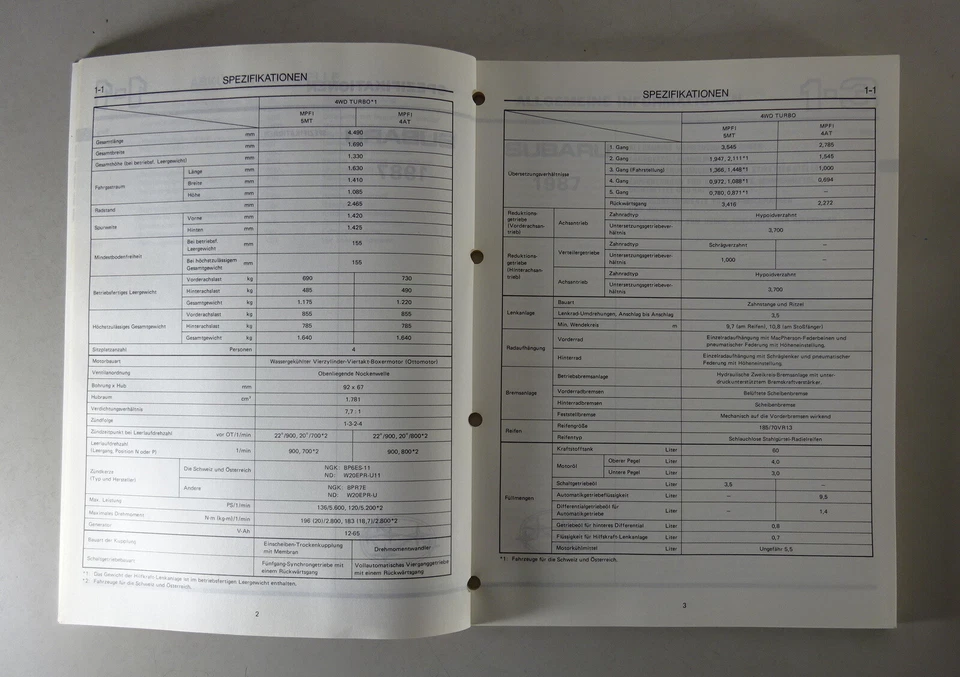 1-1 SPEZIFIKATIONEN
4WD TURBO*1
MPFI 5MT MPFI 4AT
Gesamtlänge mm 4.490
Gesamtbreite mm 1.690
Gesamthöhe (bei betriebsf. Leergewicht) mm 1.330
Fahrgastraum Länge mm 1.630
Breite mm 1.410
Höhe mm 1.085
Radstand mm 2.465
Spurweite Vorne mm 1.420
Hinten mm 1.425
Mindestbodenfreiheit Bei betriebsf. Leergewicht mm 155
Bei höchstzulässigem Gesamtgewicht mm 155
Betriebsfertiges Leergewicht Vorderachslast kg 690 730
Hinterachslast kg 485 490
Gesamtgewicht kg 1.175 1.220
Höchstzulässiges Gesamtgewicht Vorderachslast kg 855 855
Hinterachslast kg 785 785
Gesamtgewicht kg 1.640 1.640
Sitzplatzanzahl Personen 4
Motorbauart Wassergekühlter Vierzylinder-Viertakt-Boxermotor (Ottomotor)
Ventilanordnung Obenliegende Nockenwelle
Bohrung x Hub mm 92 x 67
Hubraum cm³ 1.781
Verdichtungsverhältnis 7,7 : 1
Zündfolge 1-3-2-4
Zündzeitpunkt bei Leerlaufdrehzahl vor OT/1/min 22°/900, 20°/700*2 22°/900, 20°/800*2
Leerlaufdrehzahl
(Leergang, Position N oder P) 1/min 900, 700*2 900, 800*2
Zündkerze
(Typ und Hersteller) Die Schweiz und Österreich NGK: BP6ES-11
ND: W20EPR-U11
Andere NGK: BPR7E
ND: W20EPR-U
Max. Leistung PS/1/min 136/5.600, 120/5.200*2
Maximales Drehmoment N·m (kg-m)/1/min 196 (20)/2.800, 183 (18,7)/2.800*2
Generator V-Ah 12-65
Bauart der Kupplung Einscheiben-Trockenkupplung mit Membran Drehmomentwandler
Schaltgetriebebauart Fünfgang-Synchrongetriebe mit einem Rückwärtsgang Vollautomatisches Vierganggetriebe mit einem Rückwärtsgang
*1: Das Gewicht der Hilfskraft-Lenkanlage ist im betriebsfertigen Leergewicht enthalten.
*2: Fahrzeuge für die Schweiz und Österreich.
2
SPEZIFIKATIONEN 1-1
4WD TURBO
MPFI 5MT MPFI 4AT
Übersetzungsverhältnisse 1. Gang 3,545 2,785
2. Gang 1,947, 2,111*1 1,545
3. Gang (Fahrstellung) 1,366, 1,448*1 1,000
4. Gang 0,972, 1,088*1 0,694
5. Gang 0,780, 0,871*1 –
Rückwärtsgang 3,416 2,272
Reduktions-getriebe (Vorderachsan-trieb) Achsantrieb Zahnradtyp Hypoidverzahnt
Untersetzungsgetriebever-hältnis 3,700
Reduktions-getriebe (Hinterachsan-trieb) Verteilergetriebe Zahnradtyp Schrägverzahnt –
Untersetzungsgetriebever-hältnis 1,000 –
Achsantrieb Zahnradtyp Hypoidverzahnt
Untersetzungsgetriebever-hältnis 3,700
Lenkanlage Bauart Zahnstange und Ritzel
Lenkrad-Umdrehungen, Anschlag bis Anschlag 3,5
Min. Wendekreis m 9,7 (am Reifen), 10,8 (am Stoßfänger)
Radaufhängung Vorderrad Einzelradaufhängung mit MacPherson-Federbeinen und
pneumatischer Federung mit Höheneinstellung.
Hinterrad Einzelradaufhängung mit Schräglenker und pneumatischer
Federung mit Höheneinstellung.
Bremsanlage Betriebsbremsanlage Hydraulische Zweikreis-Bremsanlage mit unter-
druckunterstütztem Bremskraftverstärker.
Vorderradbremsen Belüftete Scheibenbremse
Hinterradbremsen Scheibenbremse
Feststellbremse Mechanisch auf die Vorderbremsen wirkend
Reifen Reifengröße 185/70VR13
Reifentyp Schlauchlose Stahlgürtel-Radialreifen
Füllmengen Kraftstofftank Liter 60
Motoröl Oberer Pegel Liter 4,0
Untere Pegel Liter 3,0
Schaltgetriebeöl Liter 3,5 –
Automatikgetriebeflüssigkeit Liter – 9,5
Differentialgetriebeöl für Automatikgetriebe Liter – 1,4
Getriebeöl für hinteres Differential Liter 0,8
Flüssigkeit für Hilfskraft-Lenkanlage Liter 0,7
Motorkühlmittel Liter Ungefähr 5,5
*1: Fahrzeuge für die Schweiz und Österreich.
3